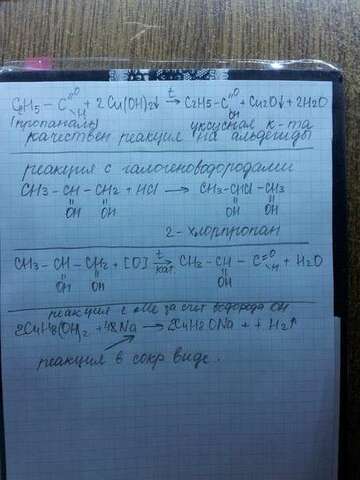 t
C2H5 – C =O H + 2 Cu(OH)2↓ → C2H5-C =O OH + Cu2O↓ + 2H2O
(пропаналь) уксусная к-та
качествен реакция на альдегиды
реакция с галогеноводородами
CH3 - CH - CH2 + HCl → CH3 - CHCl - CH3
OH OH OH OH
2 - хлорпропан
CH3 - CH - CH2 + [O] t → кат CH2 - CH - C =O H + H2O
OH OH OH
реакция с Ме за счёт водорода OH
2C4H8(OH)2 + Na → 2C4H8ONa + + H2↑
реакция в сокр виде.